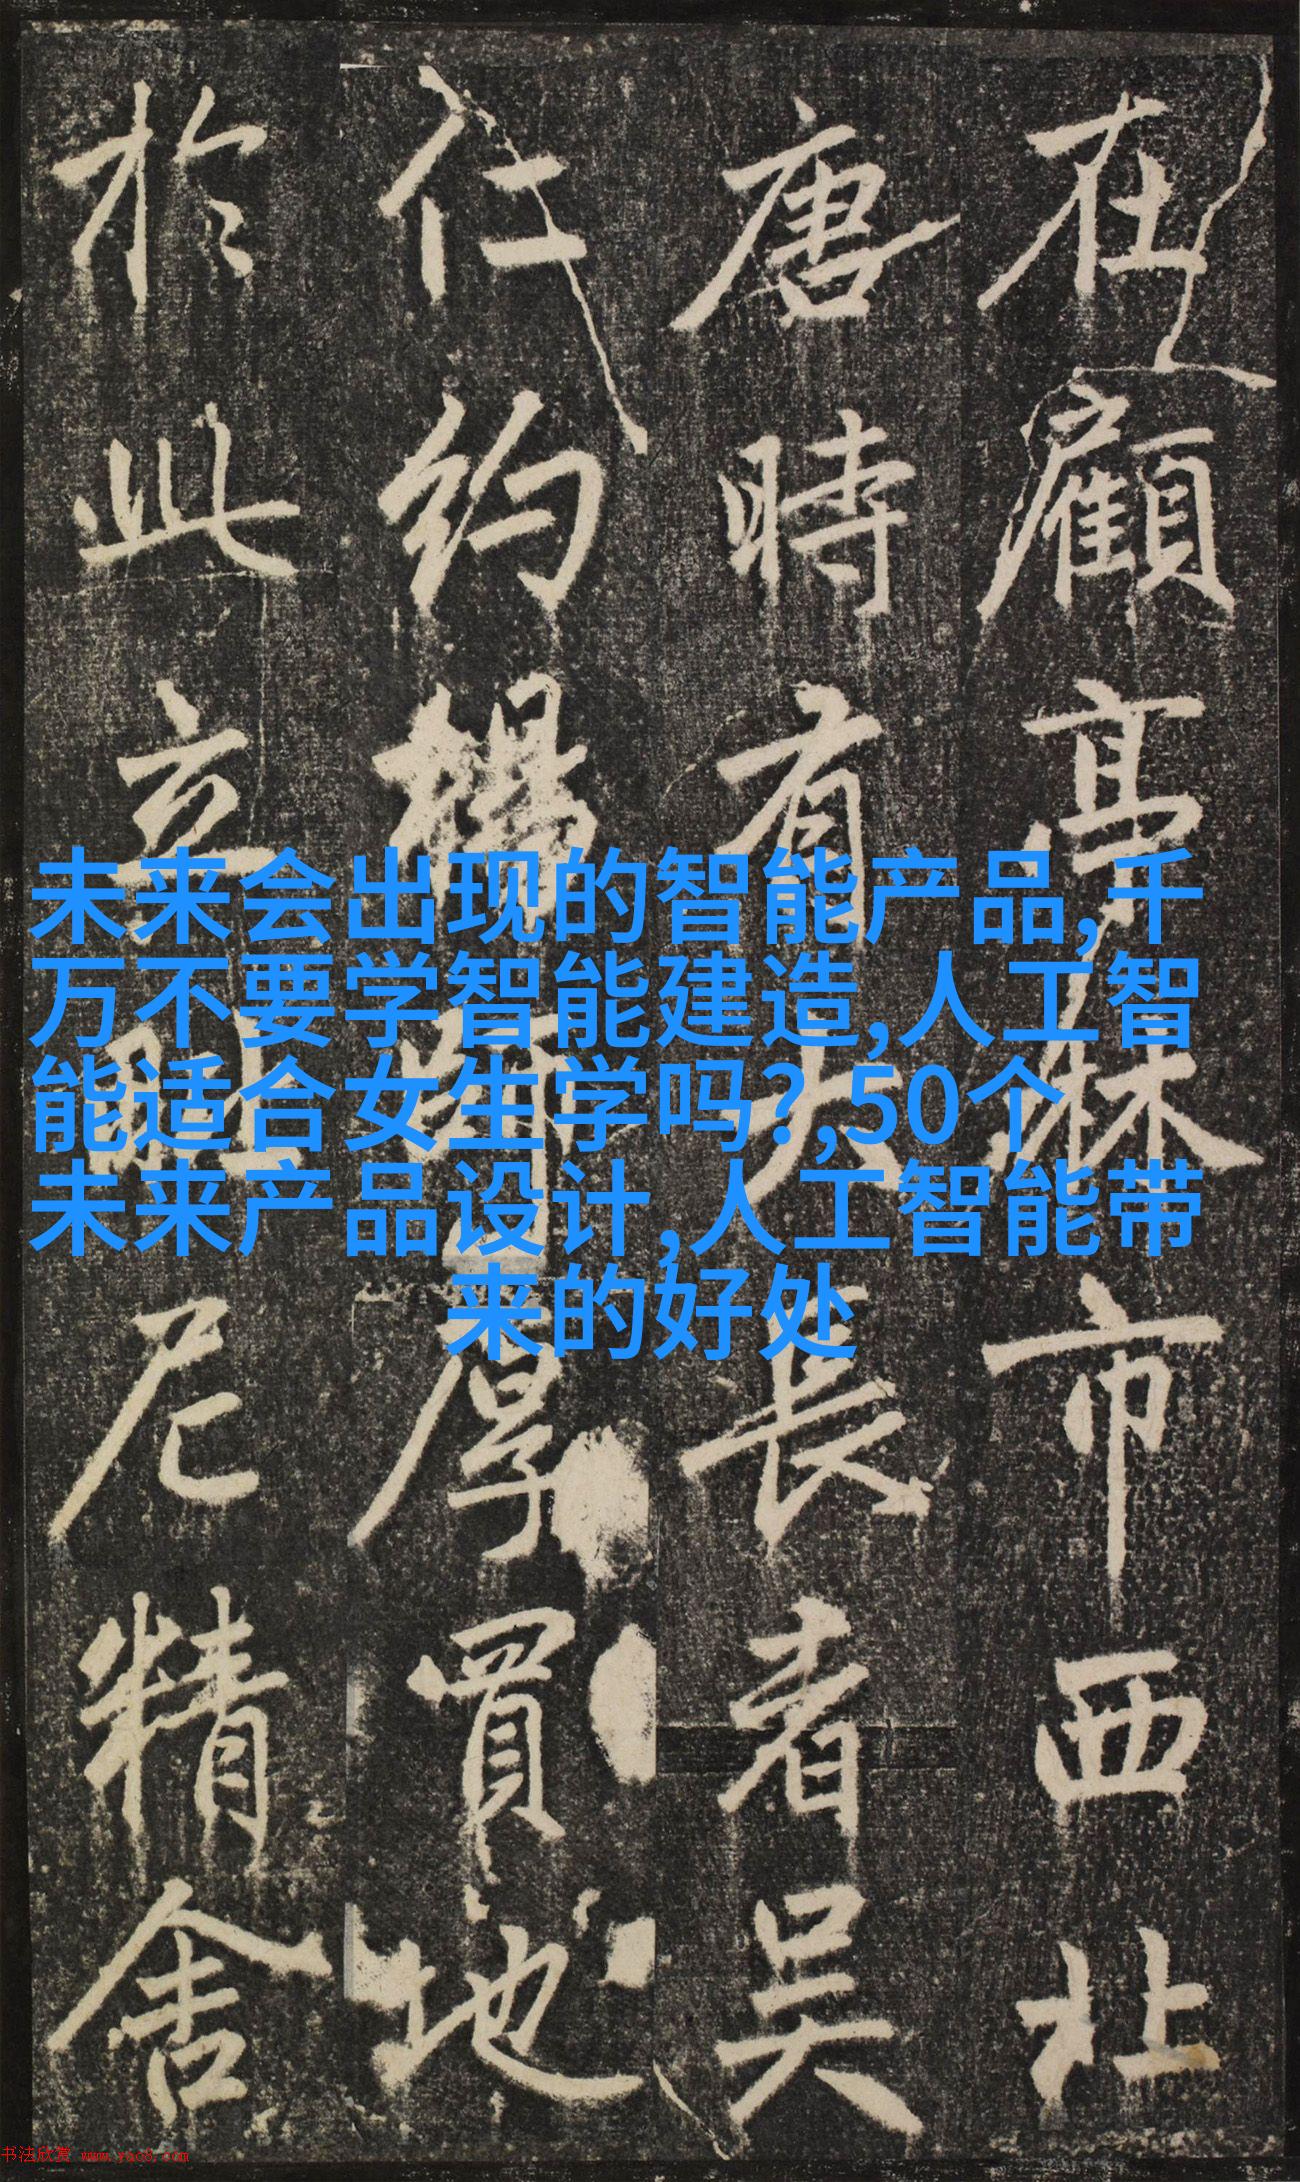 在顧亭林市西北
唐時有大長者吳
仁約厚買地
於此立尼精舍
未来会出现的智能产品,千
万不要学智能建造,人工智
能适合女生学吗?,50个
未来产品设计,人工智能带
来的好处
书法欣赏 www.yac8.com